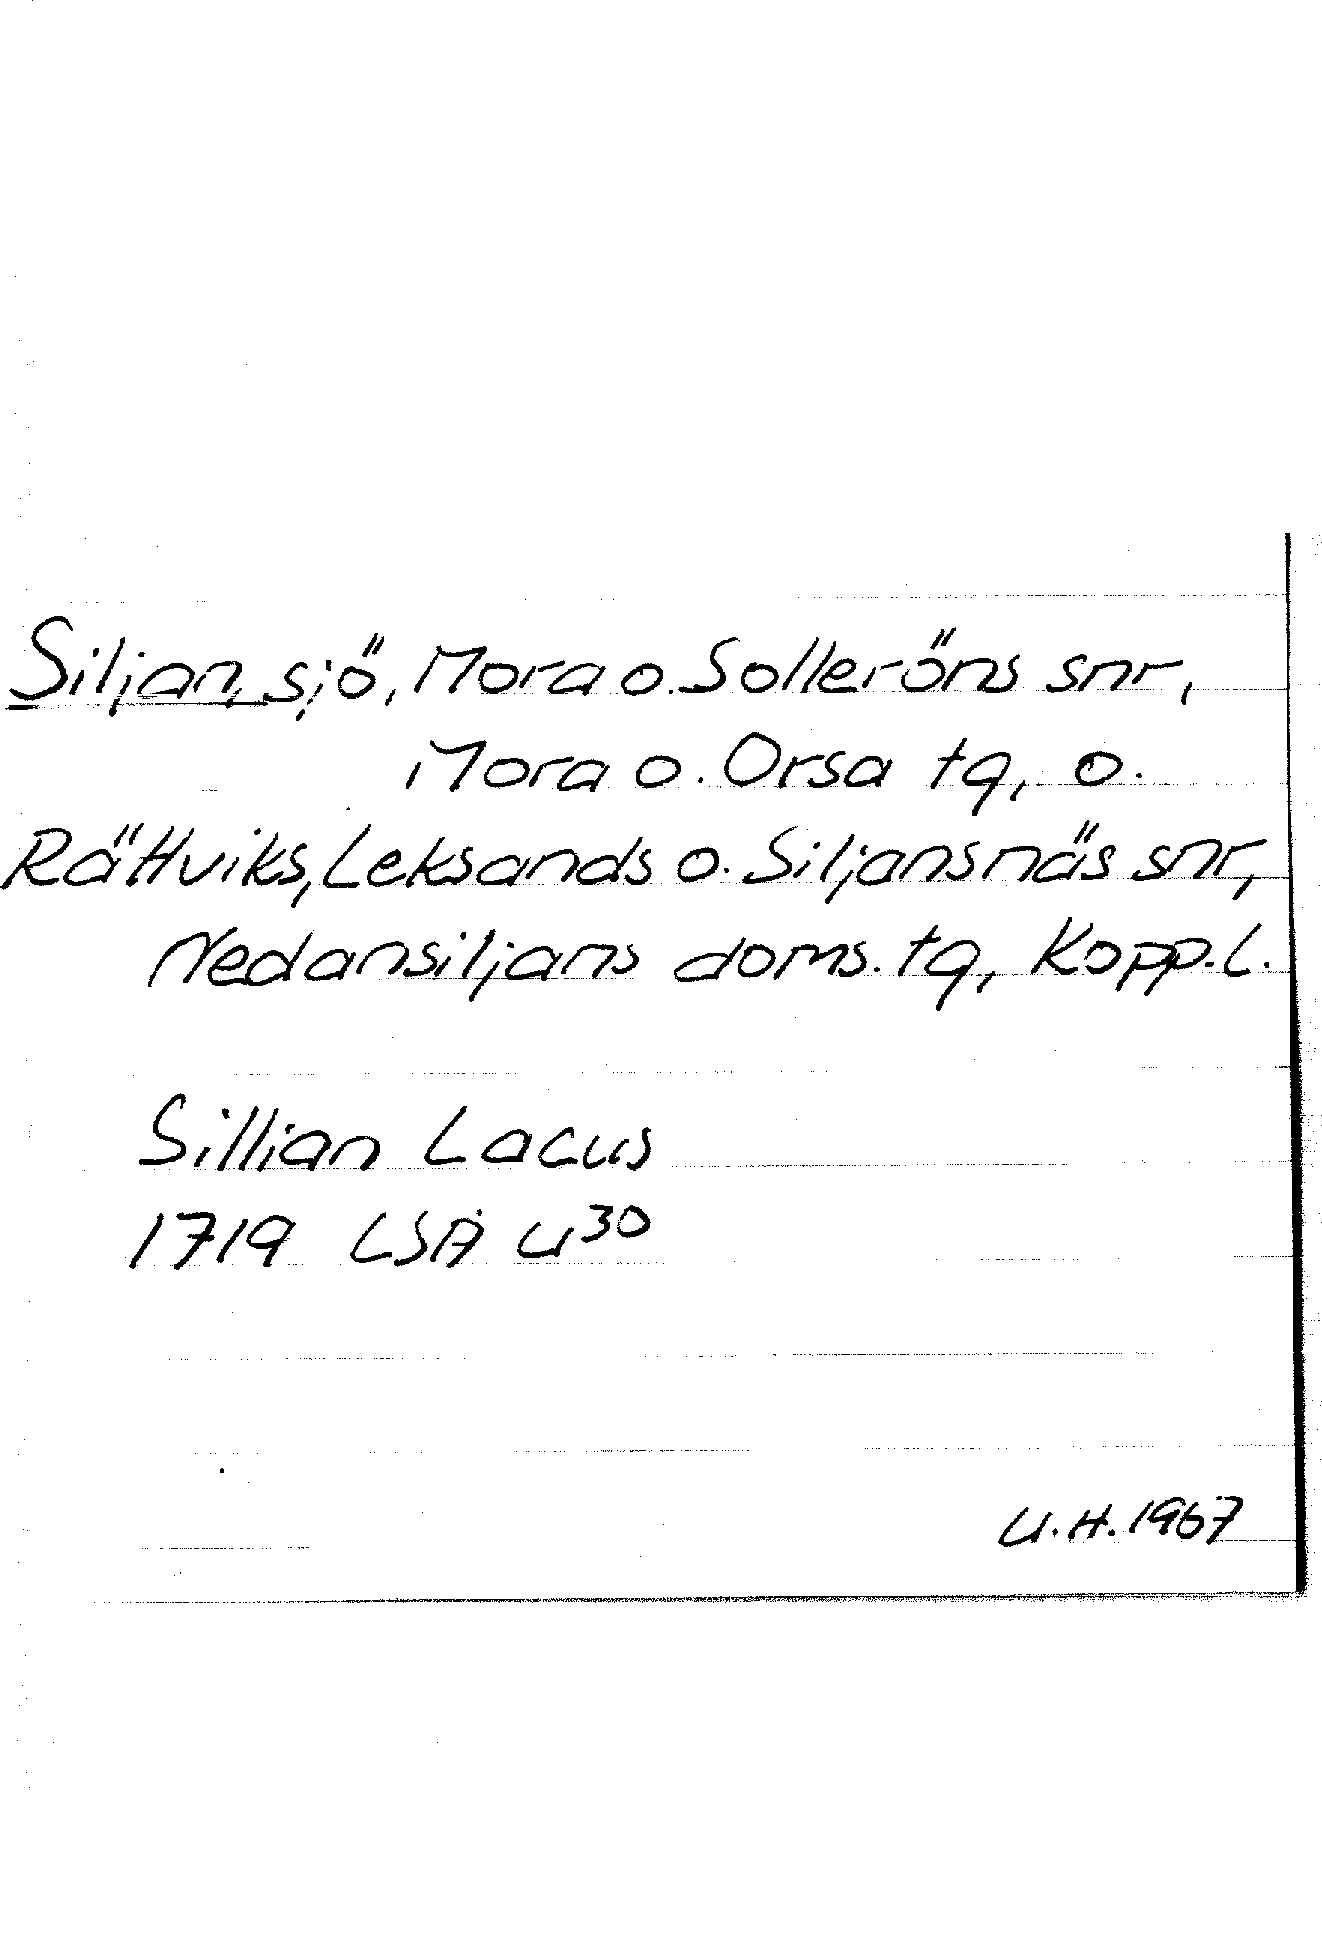 Siljan, sjö, Mora o. Solleröns snr,
Mora o. Orsa tg, o.
Rättviks, Leksands o. Siljansnäs snr,
Nedansiljans doms. tg, Kopp. l.
Sillian Lacus
1719 LSA U³⁰
U.H. 1967